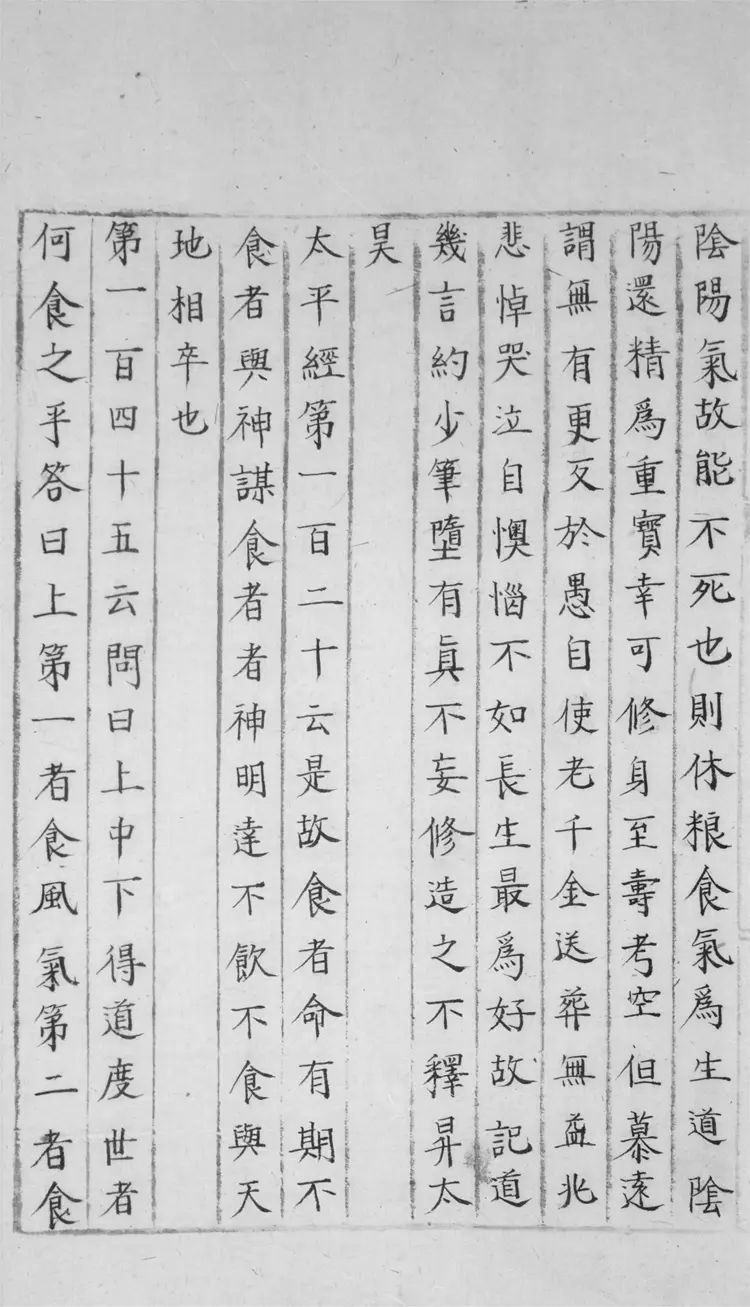 陰陽氣故能不死也則休粮食氣爲生道陰
陽還精爲重寶幸可修身至壽考空但慕遠
謂無有更反於愚自使老千金送葬無益兆
悲悼哭泣自懊惱不如長生最爲好故記道
幾言約少筆墮有眞不妄修造之不釋昇太
昊
太平經第一百二十云是故食者命有期不
食者與神謀食者者神明達不飲不食與天
地相卒也
第一百四十五云問曰上中下得道度世者
何食之乎答曰上第一者食風氣第二者食